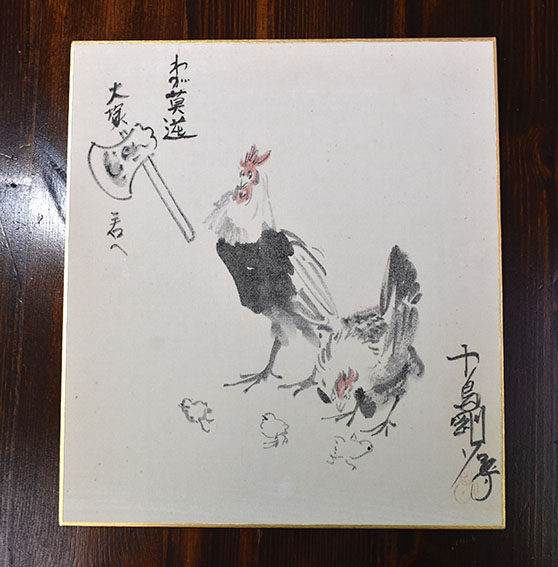 わが莫逆
大塚
君へ
小島剛夕